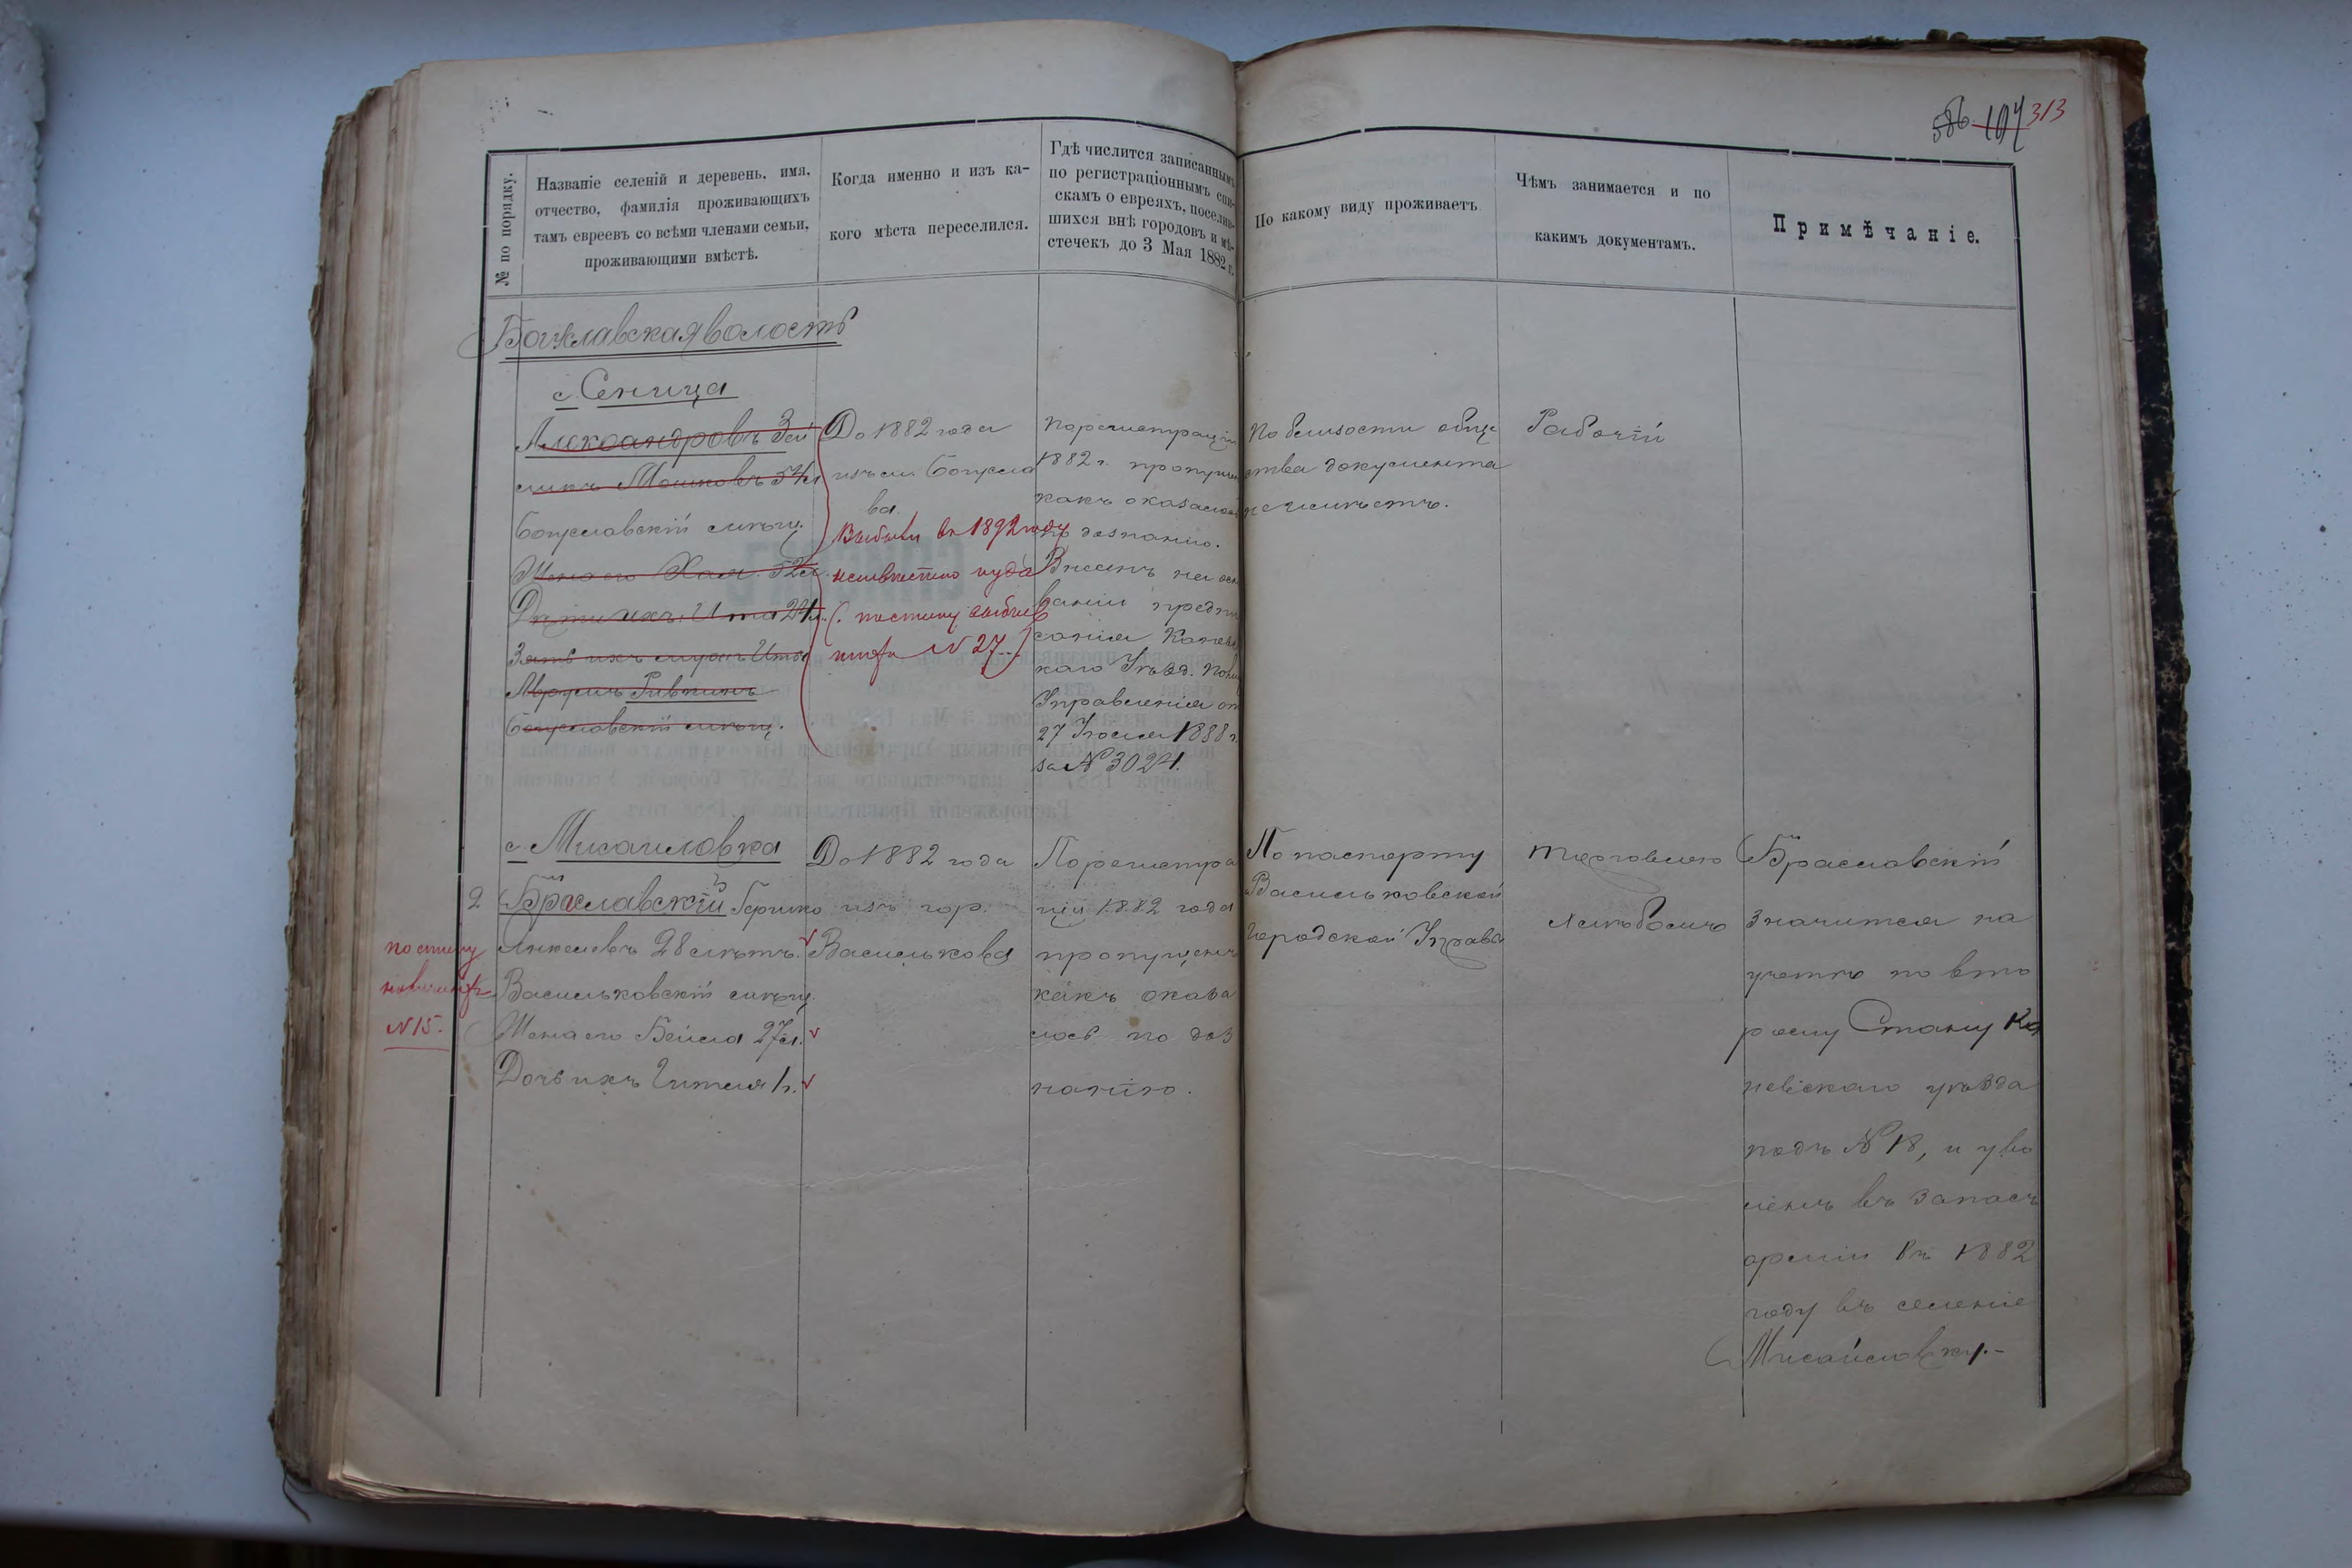 586 107 313
№ по порядку.
Названіе селеній и деревень, имя,
отчество, фамилія проживающихъ
тамъ евреевъ со всѣми членами семьи,
проживающими вмѣстѣ.
Когда именно и изъ ка-
кого мѣста переселился.
Гдѣ числится записаннымъ
по регистраціоннымъ спи-
скамъ о евреяхъ, поселив-
шихся внѣ городовъ и мѣ-
стечекъ до 3 Мая 1882 г.
По какому виду проживаетъ
Чѣмъ занимается и по
какимъ документамъ.
Примѣчаніе.
Богуславская волость
с. Сеница
Александровъ Зей
Мошковъ 54
Богуславскій мѣщ.
Жена его Хая 52 л.
Дѣти ихъ: Ита 24 л.
Зять ихъ мужъ Иты
Ривкинъ
Богуславскій мѣщ.
До 1882 года
изъ м. Богусла
ва.
Выбыли въ 1892 году
неизвѣстно куда
(. постину выбыв
№ 27...)
По регистраціи
1882 г. пропущен
какъ оказалос
по дознанію.
Внесенъ на осн
ваніи предпи
санія Каневс
каго Уѣзд. Полиц
Управленія от
27 Іюля 1888 г.
за № 3024.
По близости обще
ства документа
не имѣетъ.
Рабочій
с. Мисаиловка
2
Браславскій Гершко
Янкелевъ 28 лѣтъ.
Васильковскій мѣщ.
Жена его Бейла 27 л.
Дочь ихъ Гителя 1 г.
№ 15.
До 1882 года
изъ гор.
Василькова
По регистра
ціи 1882 года
пропущенъ
какъ оказа
лось по доз
нанію.
По паспорту
Васильковской
Городской Управы
торговлею
хлѣбомъ
Браславскій
значится на
учетѣ по вто
рому Стану Ка
невскаго уѣзда
подъ № 18, и уво
ленъ въ запасъ
арміи въ 1882
году въ селеніе
Мисаиловку.-